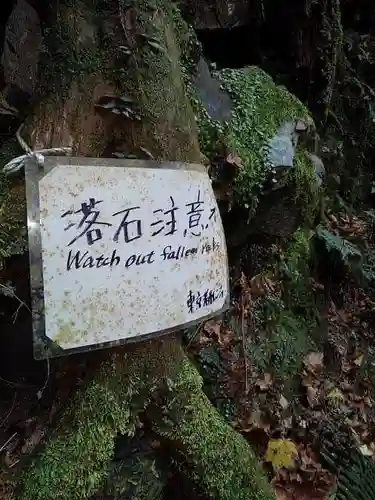 落石注意
Watch out fallen rocks